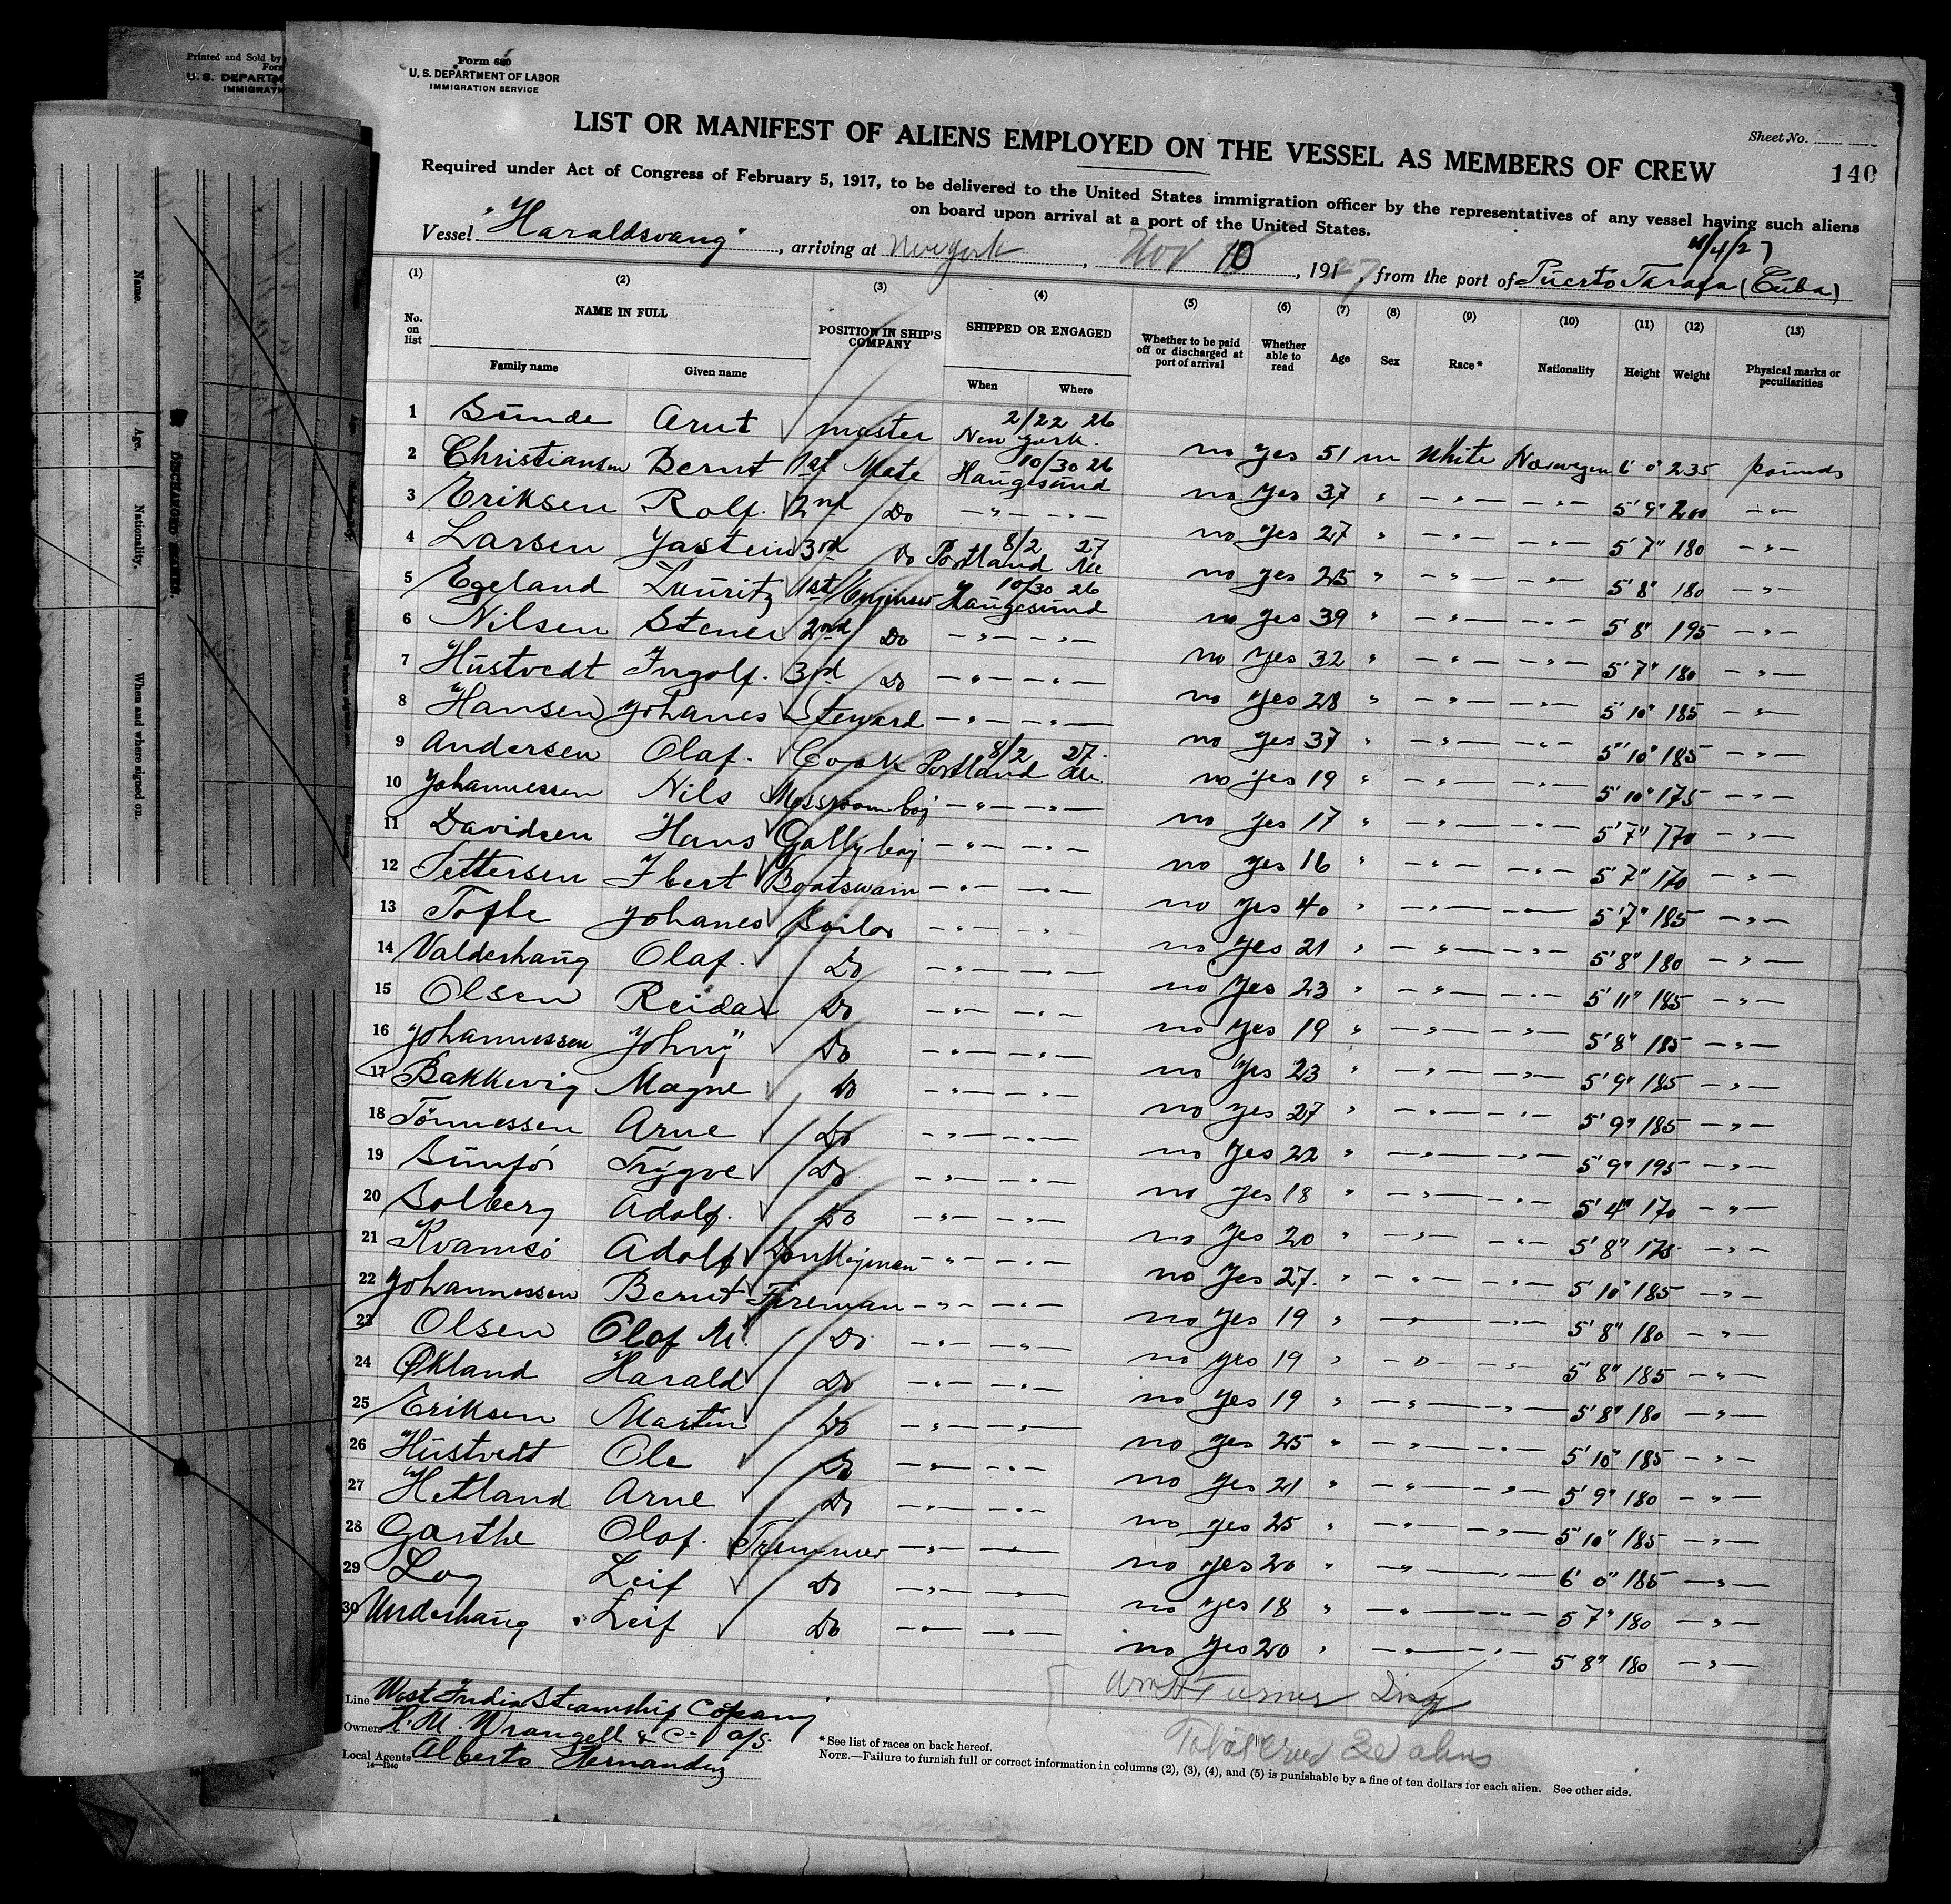 Printed and Sold by
Form
U. S. DEPARTM
IMMIGRATI
Form 680
U. S. DEPARTMENT OF LABOR
IMMIGRATION SERVICE
LIST OR MANIFEST OF ALIENS EMPLOYED ON THE VESSEL AS MEMBERS OF CREW
Sheet No.
140
Required under Act of Congress of February 5, 1917, to be delivered to the United States immigration officer by the representatives of any vessel having such aliens
on board upon arrival at a port of the United States.
11/4/27
Vessel "Haraldsvang", arriving at New York, Nov 10, 1927, from the port of Puerto Tarafa (Cuba)
(1) (2) (3) (4) (5) (6) (7) (8) (9) (10) (11) (12) (13)
No. on list NAME IN FULL POSITION IN SHIP'S COMPANY SHIPPED OR ENGAGED Whether to be paid off or discharged at port of arrival Whether able to read Age Sex Race* Nationality Height Weight Physical marks or peculiarities
Family name Given name When Where
1 Sunde Arnt master 2/22 26 New York. no yes 51 m White Norwegen 6' 0" 235 pounds
2 Christiansen Bernt 1st Mate 10/30 26 Haugesund no yes 37 " -"- -"- 5' 9" 200 -"-
3 Eriksen Rolf. 2nd Do -"- -"- no yes 27 " -"- -"- 5' 7" 180 -"-
4 Larsen Jastein 3rd Do 8/2 27 Portland Me no yes 25 " -"- -"- 5' 8" 180 -"-
5 Egeland Lauritz 1st Engineer 10/30 26 Haugesund no yes 39 " -"- -"- 5' 8" 195 -"-
6 Nilsen Stener 2nd Do -"- -"- no yes 32 " -"- -"- 5' 7" 180 -"-
7 Hustvedt Ingolf. 3rd Do -"- -"- no yes 28 " -"- -"- 5' 10" 185 -"-
8 Hansen Johanes Steward -"- -"- no yes 37 " -"- -"- 5' 10" 185 -"-
9 Andersen Olaf. Cook 8/2 27. Portland Me. no yes 19 " -"- -"- 5' 10" 175 -"-
10 Johannessen Nils Messroom boy -"- -"- no yes 17 " -"- -"- 5' 7" 170 -"-
11 Davidsen Hans Gally boy -"- -"- no yes 16 " -"- -"- 5' 7" 170 -"-
12 Pettersen Ibert Boatswain -"- -"- no yes 40 " -"- -"- 5' 7" 185 -"-
13 Tofte Johanes Sailor -"- -"- no yes 21 " -"- -"- 5' 8" 180 -"-
14 Valderhaug Olaf. Do -"- -"- no yes 23 " -"- -"- 5' 11" 185 -"-
15 Olsen Reidar Do -"- -"- no yes 19 " -"- -"- 5' 8" 185 -"-
16 Johannessen Johny Do -"- -"- no yes 23 " -"- -"- 5' 9" 185 -"-
17 Bakkevig Magne Do -"- -"- no yes 27 " -"- -"- 5' 9" 185 -"-
18 Tönnessen Arne Do -"- -"- no yes 22 " -"- -"- 5' 9" 195 -"-
19 Sunför Trygve Do -"- -"- no yes 18 " -"- -"- 5' 4" 170 -"-
20 Solberg Adolf. Do -"- -"- no yes 20 " -"- -"- 5' 8" 175 -"-
21 Kvamsö Adolf Donkeyman -"- -"- no yes 27. " -"- -"- 5' 10" 185 -"-
22 Johannessen Bernt Fireman -"- -"- no yes 19 " -"- -"- 5' 8" 180 -"-
23 Olsen Olof M. Do -"- -"- no yes 19 " -"- -"- 5' 8" 185 -"-
24 Økland Harald Do -"- -"- no yes 19 " -"- -"- 5' 8" 180 -"-
25 Eriksen Martin Do -"- -"- no yes 25 " -"- -"- 5' 10" 185 -"-
26 Hustvedt Ole Do -"- -"- no yes 21 " -"- -"- 5' 9" 180 -"-
27 Hetland Arne Do -"- -"- no yes 25 " -"- -"- 5' 10" 185 -"-
28 Garthe Olof. Tremmer -"- -"- no yes 20 " -"- -"- 6' 0" 185 -"-
29 Log Leif Do -"- -"- no yes 18 " -"- -"- 5 7" 180 -"-
30 Underhaug Leif Do -"- -"- no yes 20 " -"- -"- 5 8" 180 -"-
Wm H Turner
Total Crew 30 aliens
Line West India Steamship Copany
Owners H. M. Wrangell & Co A/S.
Local Agents Alberto Hernandez
14—1240
* See list of races on back hereof.
NOTE.—Failure to furnish full or correct information in columns (2), (3), (4), and (5) is punishable by a fine of ten dollars for each alien. See other side.
Name.
Age.
Nationality.
When and where signed on.
DISCHARGED